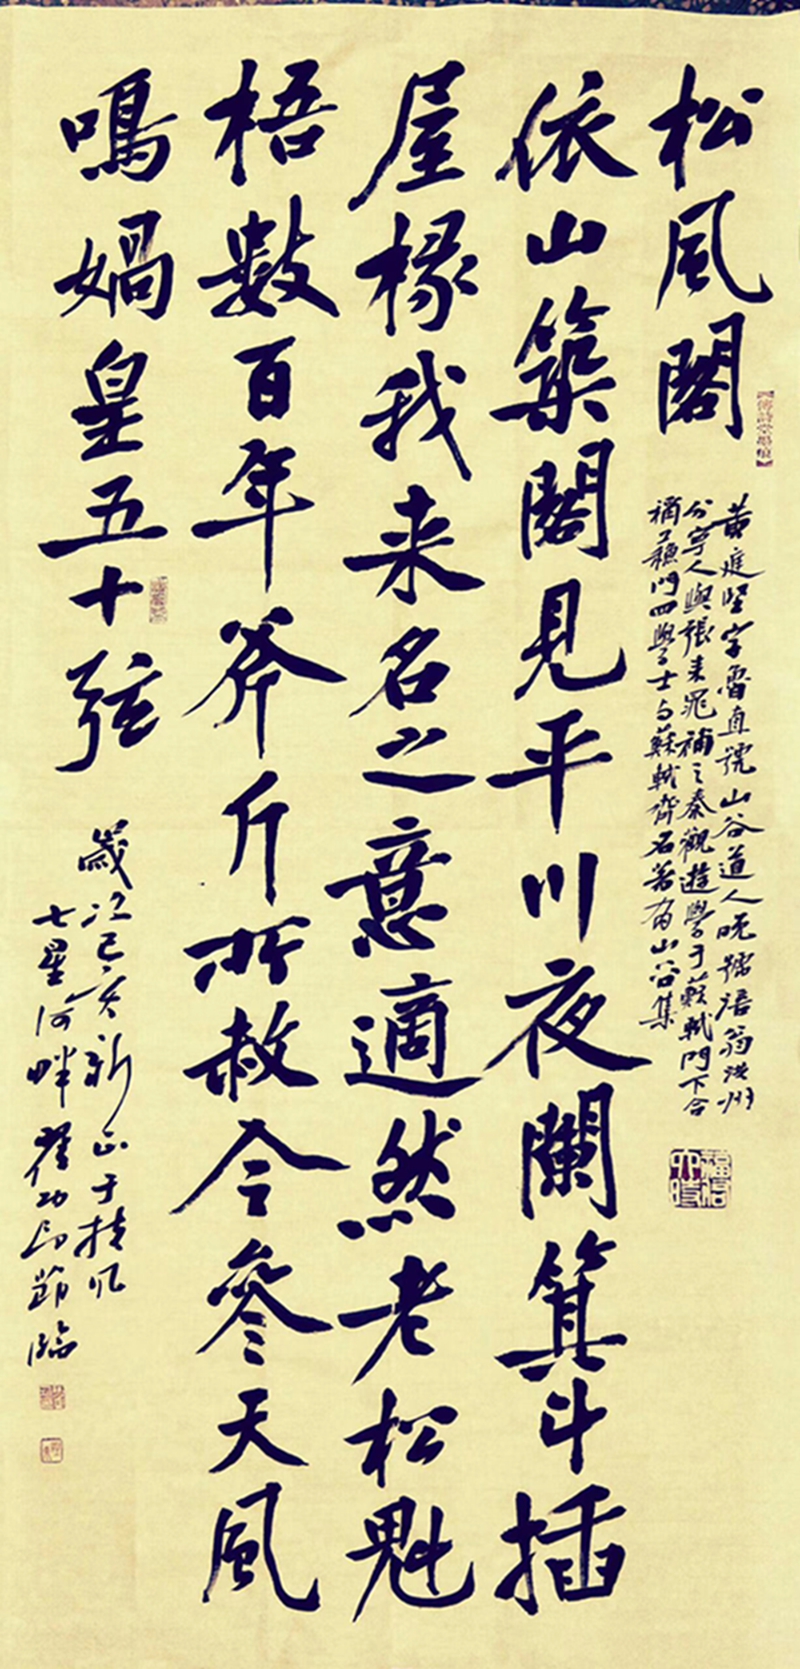 松風閣
黄庭堅字魯直號山谷道人晚號涪翁洪州
分寧人與張耒晁補之秦觀遊學于蘇軾門下合
稱蘇門四學士与蘇軾齊名著有山谷集
依山築閣見平川夜闌箕斗插
屋椽我来名之意適然老松魁
梧數百年斧斤所赦今參天風
鳴媧皇五十弦
歲次己亥新正于扶风
七星河畔
臨